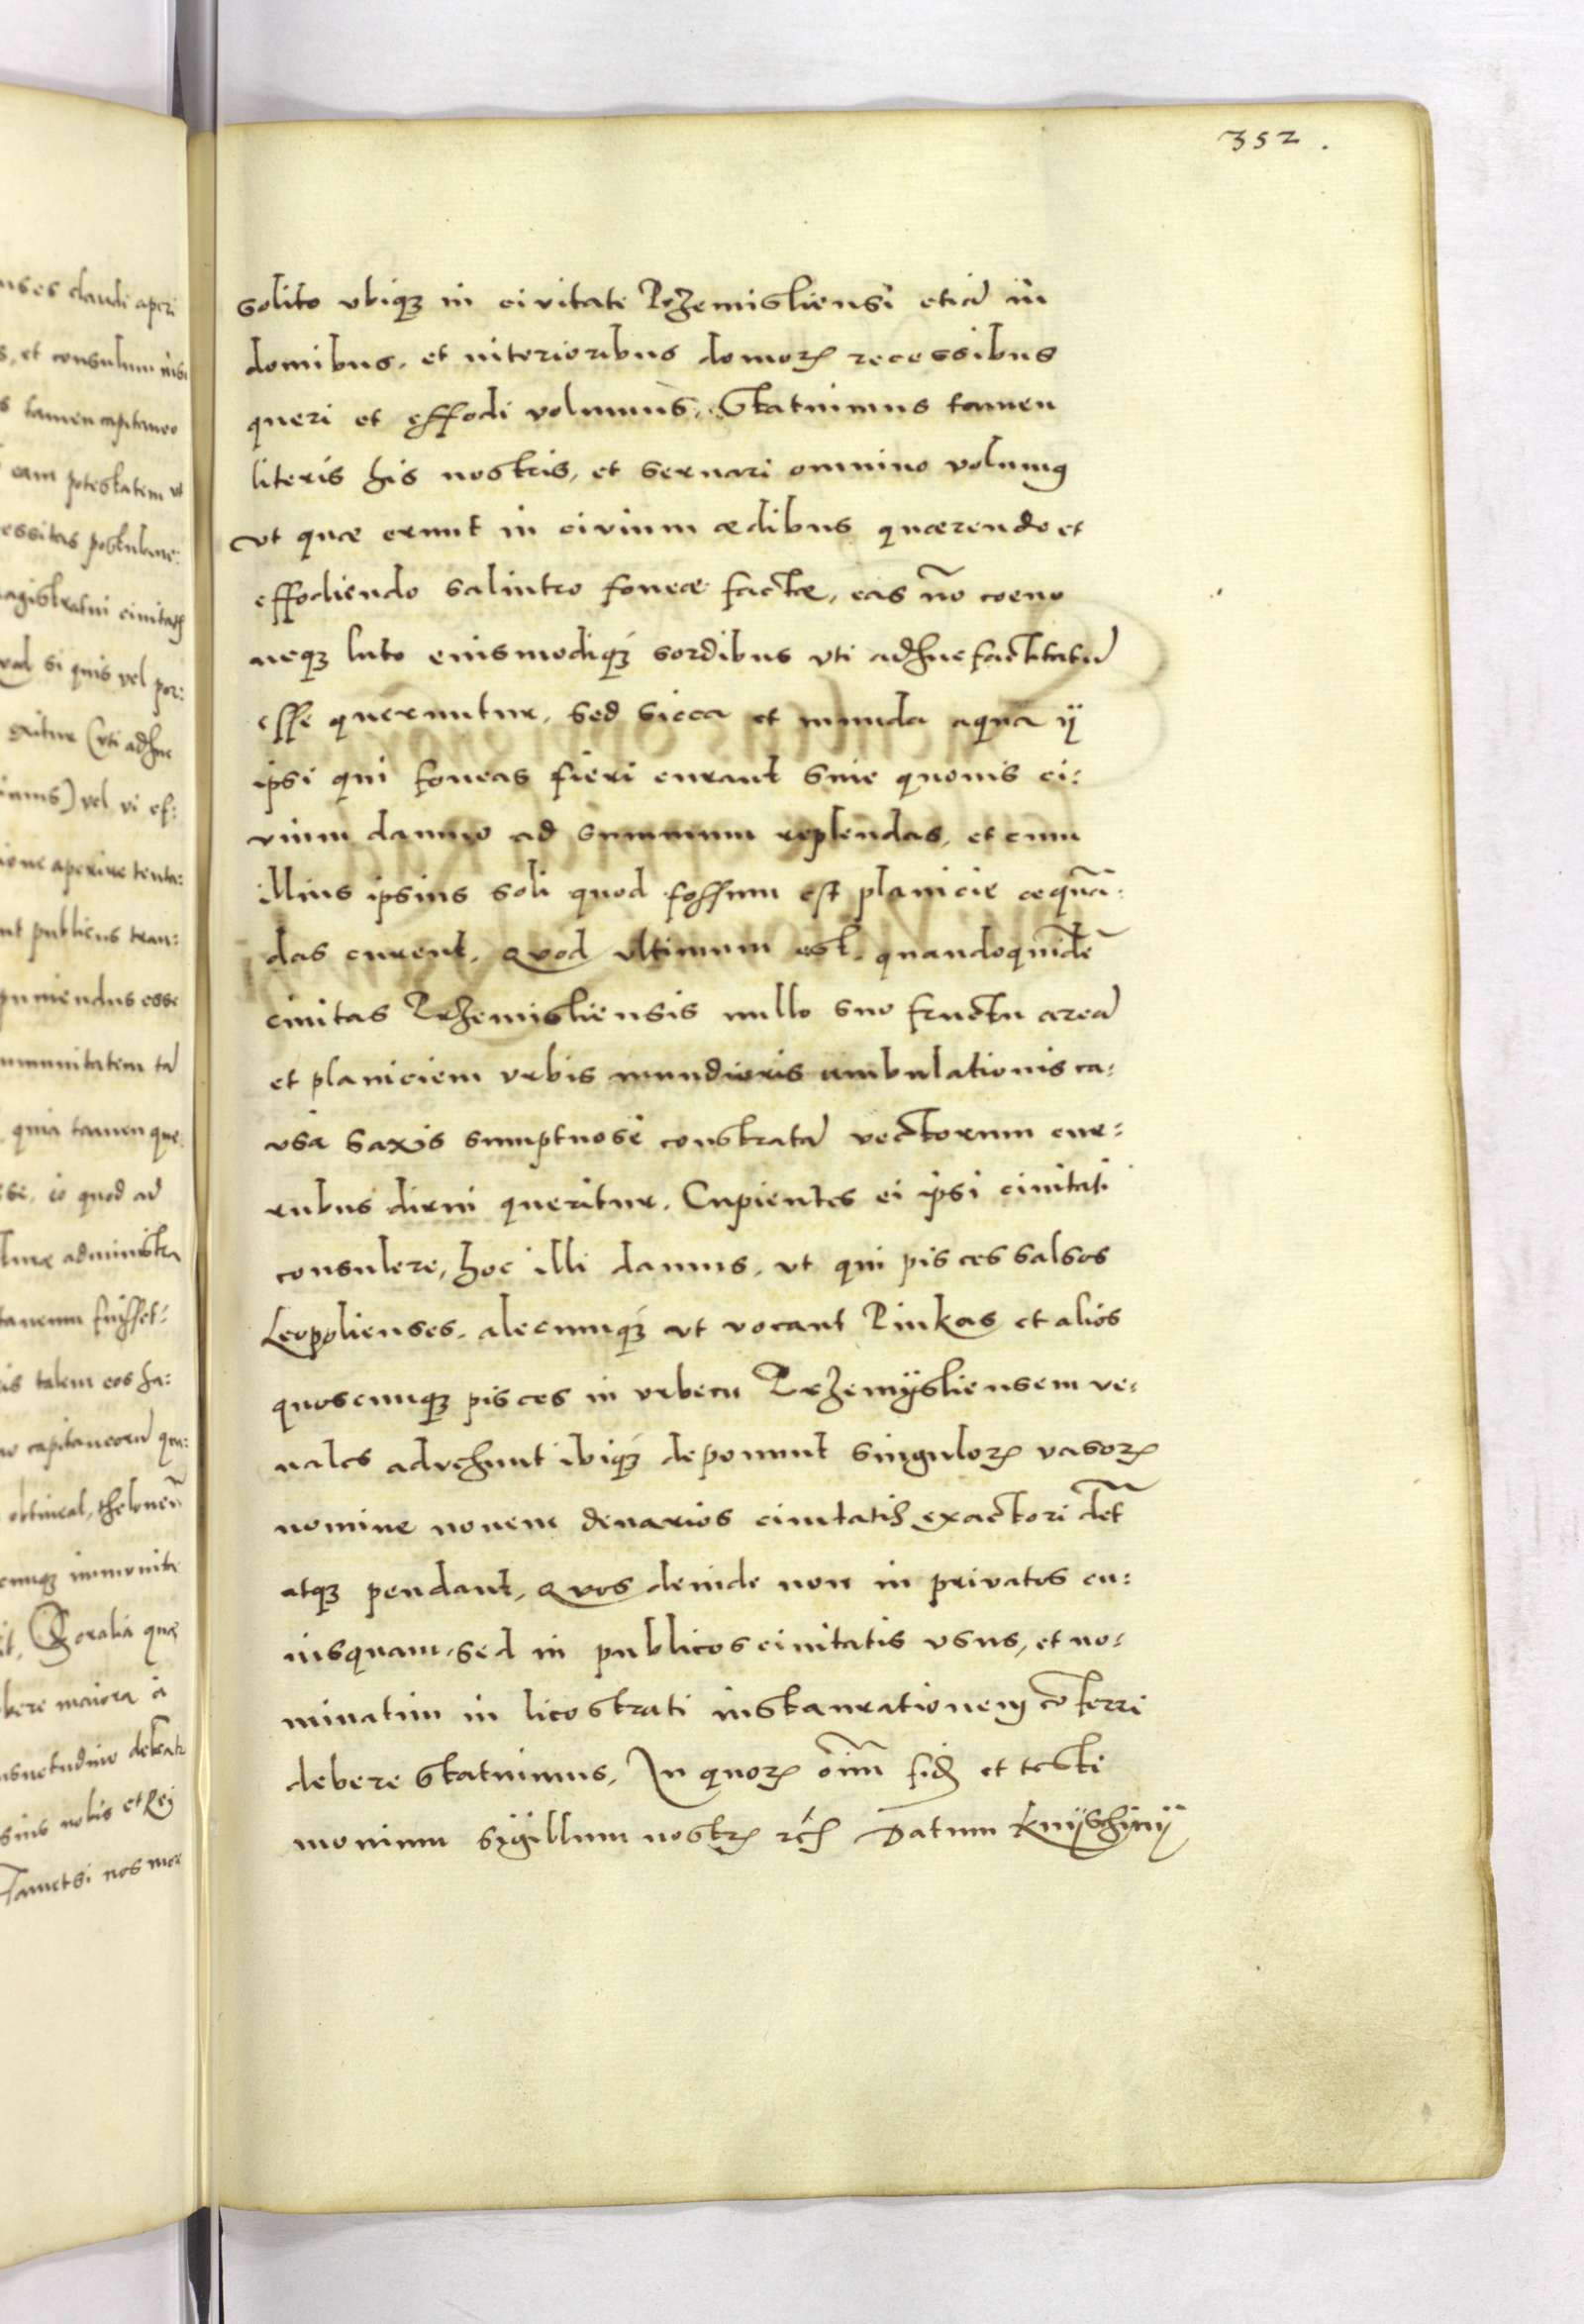 352.
solito vbiqz in civitate Przemisliensi etiā in
domibus, et interioribus domorꝝ recessibus
queri et effodi volumus, Statuimus tamen
literis his nostris, et seruari omnino volumꝰ
vt quæ erunt in civium ædibus quærendo et
effodiendo salnitro foueæ factæ, eas nō coeno
neqz luto eiusmodiqz sordibus vti adhuc factitatū
esse queruntur, sed sicca et munda aqua ij
ipsi qui foueas fieri curant sine quouis ci:
uium damno ad summum replendas, et cum
illius ipsius soli quod fossum est planicie æquā:
das curent, Quod vltimum est, quandoquidē
ciuitas Przemisliensis nullo suo fructu areā
et planiciem vrbis mundioris ambulationis ca:
usa saxis sumptuose constratā vectorum cur:
rubus dirui queritur. Cupientes ei ipsi ciuitati
consulere, hoc illi damus, vt qui pisces salsos
Leopolienses, alecumqz vt vocant Pinkas et alios
quoscumqz pisces in vrbem Przemÿsliensem ve:
nales advehunt ibiqz deponunt singulorꝝ vasorꝝ
nomine nouem denarios ciuitatis exactori det̄
atqz pendant, Quos deinde non in privatos cu:
iusquam, sed in publicos ciuitatis vsus, et no:
minatim in licostrati instaurationem cōferri
debere statuimus, In quorꝝ oīm fidē et testi
monium sigillum nostrꝝ rc̄ Datum Knÿschinij

nses claudi aperi
s, et consulum nisi
s tamen capitaneo
eam potestatem vt
essitas postulaue:
magistratui ciuitatꝭ
vel si quis vel por:
(vti adhuc
vel vi ef:
ione aperire tenta:
nt publicus tran:
puniendus esse
mmunitatem tā
quia tamen que
io quod ad
administra
taneum fuisset:
is talem eos fa:
capitaneorū
obtineat, theloneū
cumqz immunita
Foralia quæ
maiora a
suetudine debeat
sius nobis et Rei
Tametsi nos mor